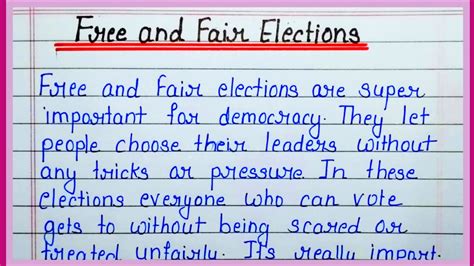 Free and Fair Elections
Free and Fair elections are super
important for democracy. They let
people choose their leaders without
any tricks or pressure. In these
elections everyone who can vote
gets to without being scared or
treated unfairly. Its really import.